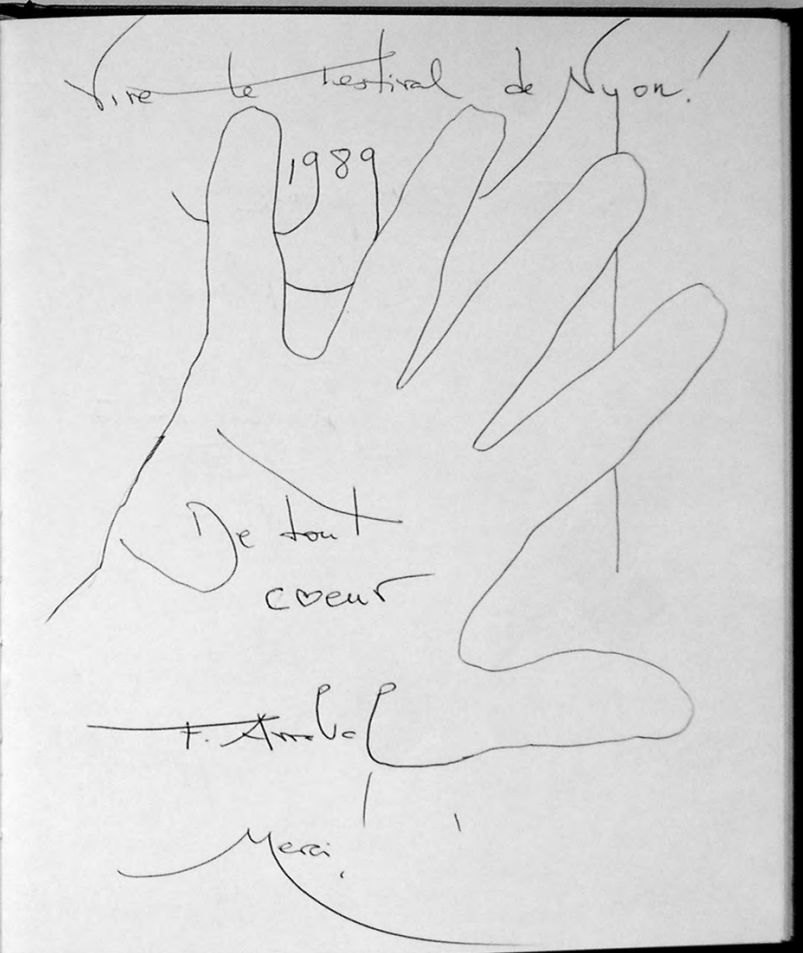 Vive le Festival de Nyon!
1989
De tout
coeur
F. Arrabal
Merci!